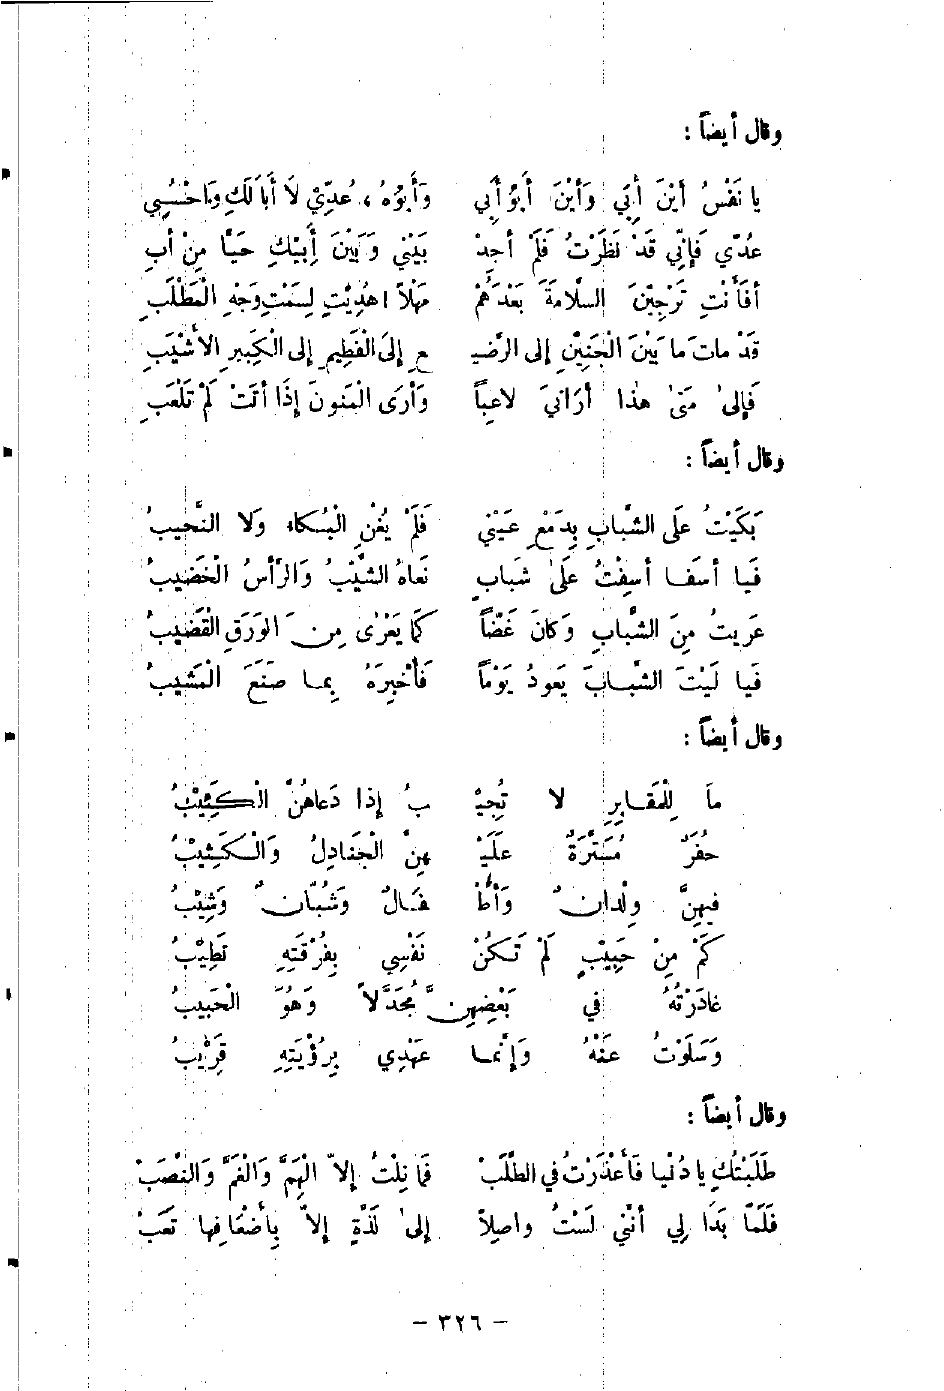 وقال أيضاً :
يا نَفْسُ أيْنَ أبي وَأيْنَ أبُو أبي وَأبُوهُ ، عُدِّيْ لَا أبَا لَكِ وَاحْسُبِي
عُدّي فَإنّي قَدْ نَظَرْتُ فَلَمْ أجِدْ بَيْني وَبَيْنَ أبِيْكِ حَيّاً مِنْ أبِ
أفَأنْتِ تَرْجِيْنَ السَّلَامَةَ بَعْدَهُمْ مَهْلاً اهْدِيْتِ لِسَمْتِ وَجْهِ الْمَطْلَبِ
قَدْ ماتَ ما بَيْنَ الْجَنِيْنِ إلى الرَّضيـ ـعِ إلَى الْفَطِيمِ إلى الْكَبِيرِ الاشْيَبِ
فَإلىٰ مَتىٰ هٰذا أرَانيَ لاعِباً وَأرَى الْمَنونَ إذَا أتَتْ لَمْ تَلْعَبِ
وقال أيضاً :
بَكَيْتُ عَلَى الشَّبابِ بِدَمْعِ عَيْني فَلَمْ يُغْنِ الْبُكاءُ وَلا النَّحيبُ
فَيا أسَفا أسِفْتُ عَلىٰ شَبابٍ نَعاهُ الشَّيْبُ وَالرَّأسُ الْخَضيبُ
عَرِيتُ مِنَ الشَّبابِ وَكانَ غَضّاً كَمَا يَعْرٰى مِنَ الوَرَقِ القَضيبُ
فَيا لَيْتَ الشَّبابَ يَعودُ يَوْماً فَأخْبِرَهُ بِما صَنَعَ الْمَشيبُ
وقال أيضاً :
مَا لِلْمَقابِرِ لا تُجِيْـ ـبُ إذا دَعاهُنَّ الْكَئِيْبُ
حُفَرٌ مُسَتَّرَةٌ عَلَيْـ ـهِنَّ الْجَنادِلُ وَالْكَثِيْبُ
فيهِنَّ وِلْدانٌ وَأطْـ ـفالٌ وَشُبّانٌ وَشِيْبُ
كَمْ مِنْ حَبِيْبٍ لَمْ تَكُنْ نَفْسِي بِفُرْقَتِهِ تَطِيْبُ
غادَرْتُهُ في بَعْضِهِنَّ مُجَدَّلاً وَهُوَ الْحَبيبُ
وَسَلَوْتُ عَنْهُ وَإنَّما عَهْدِي بِرُؤْيَتِهِ قَرِيْبُ
وقال أيضاً :
طَلَبْتُكِ يا دُنْيا فَأعْذَرْتُ في الطَّلَبْ فَما نِلْتُ إلاّ الْهَمَّ وَالْغَمَّ وَالنَّصَبْ
فَلَمّا بَدَا لِي أنَّني لَسْتُ واصِلاً إلىٰ لَذَّةٍ إلاّ بِأضْعَافِها تَعَبْ
- ٣٢٦ -